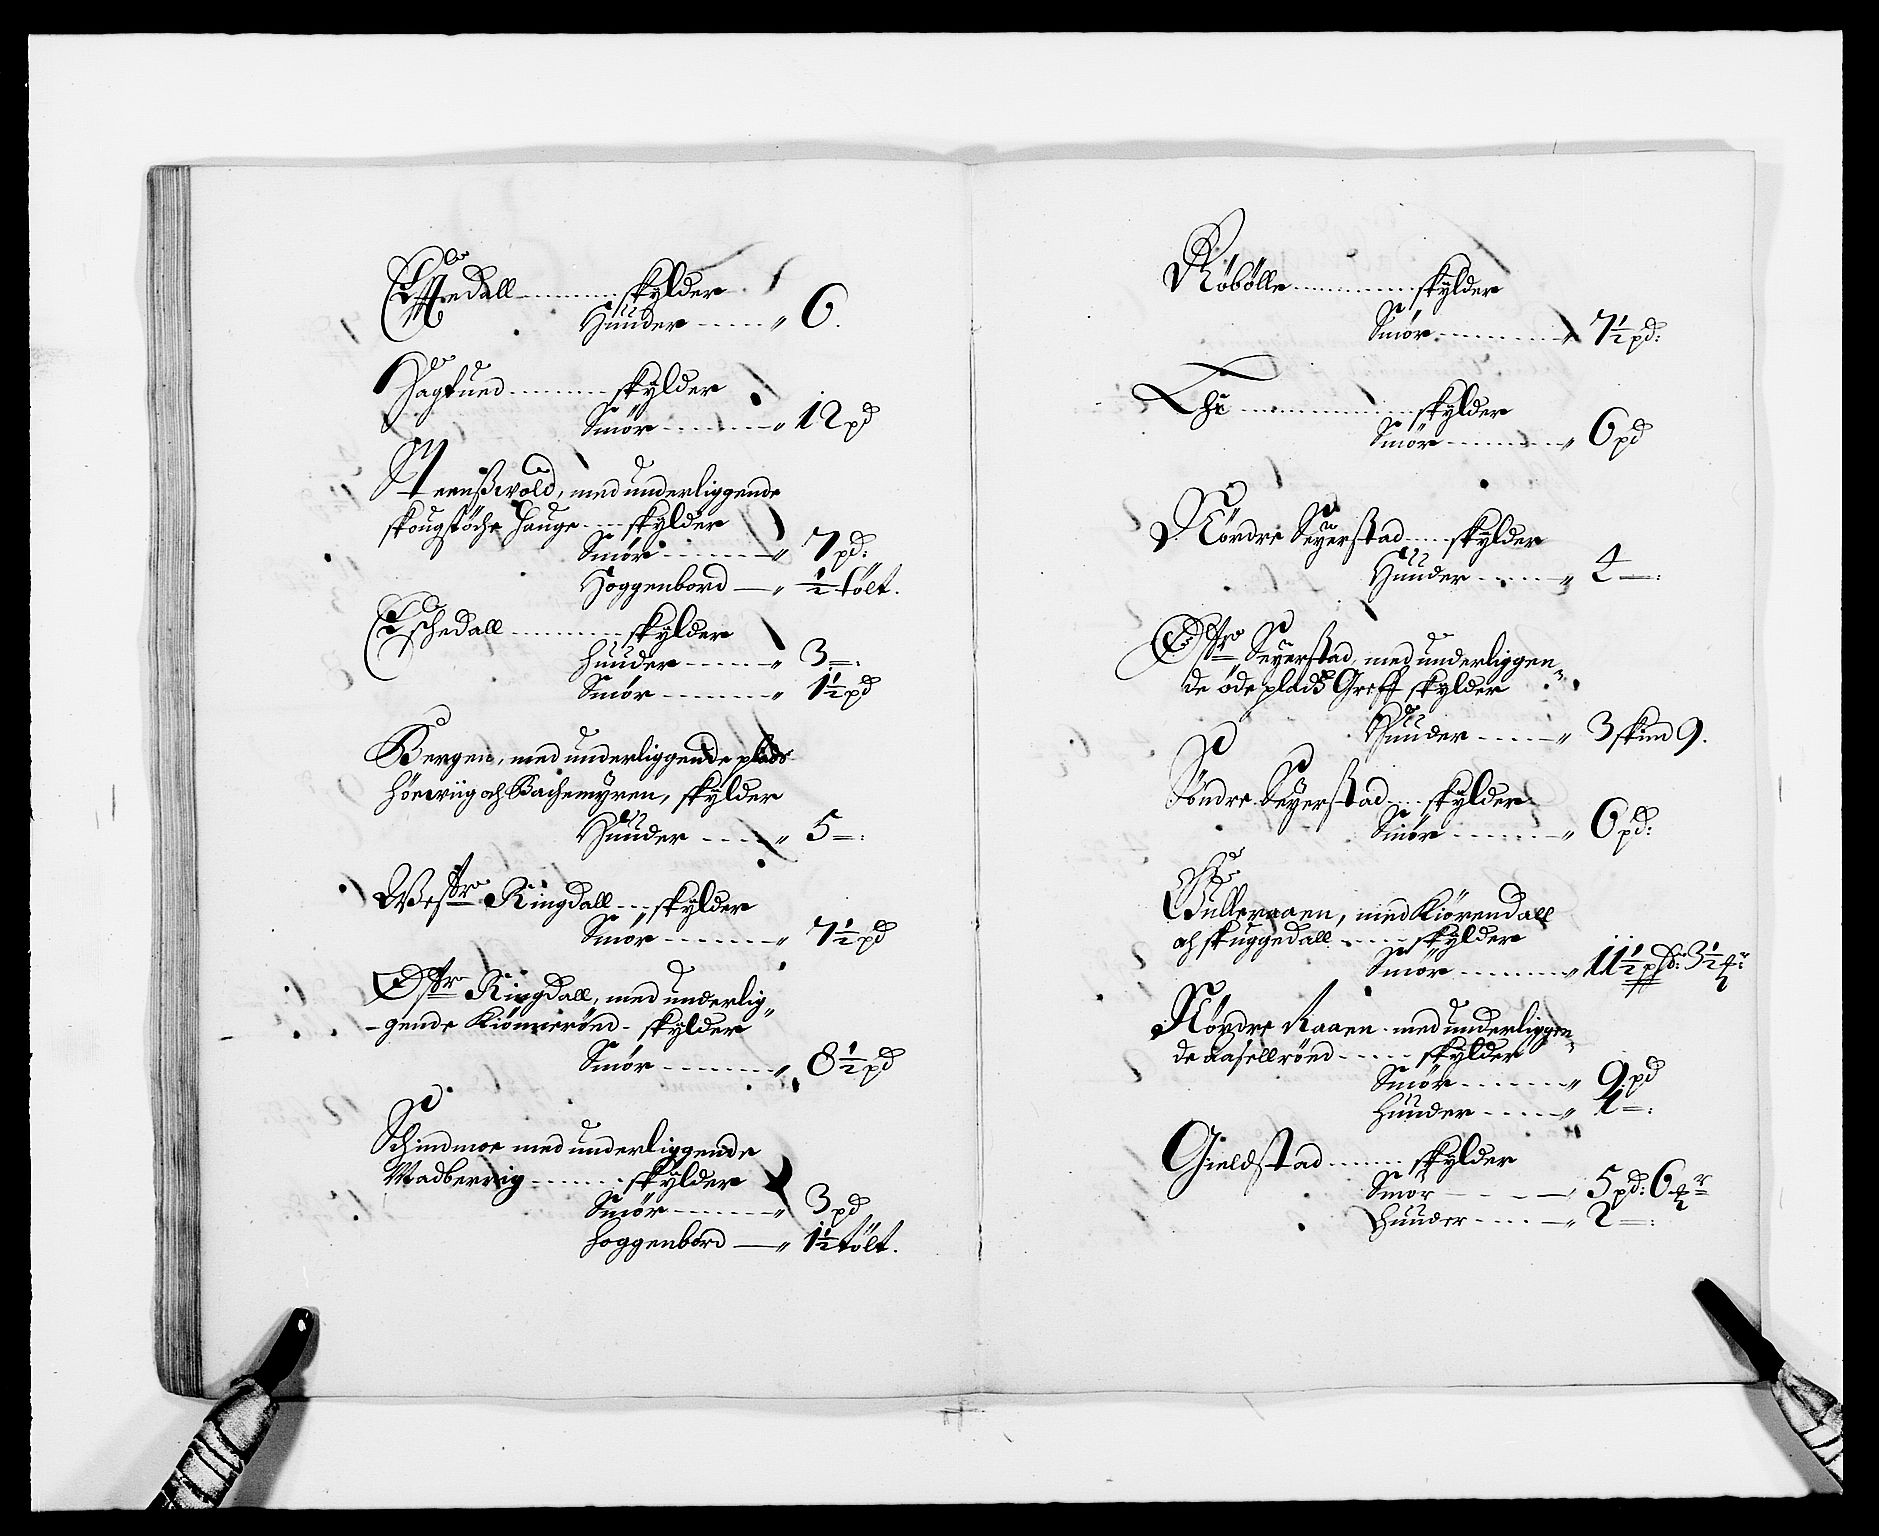 Effuedall skylder
Huuder 6.
Hagtued skylder
Smör 12 pd
Steenßwold, med underliggende
skougstöche Hauge skylder
Smör 7 pd:
Hoggenbord ½ tölt.
Eschedall skylder
huuder 3
Smör 1½ pd
Bergen, med underliggende plads
och Bachemyren, skylder
Huuder 5
Westre Ringdall skylder
Smör 7½ pd
Østre Ringdall, med underlig
gende Kiönnerönd skylder
Smör 8½ pd
Schindmoe med underliggende
Madberrig skylder
Smör 3 pd
hoggenbord 1½ tölt.
Röbölle skylder
Smör 7½ pd:
Lhe skylder
Smör 6 pd
Nördre Seyerstad skylder
Huuder 4
Østre Seyerstad, med underliggen
de öde plads Greff skylder
Huuder 3 skind 9.
Söndre Seyerstad skylder
Smör 6 pd:
Gulleraaen, med Kiörendall
och skuggedall skylder
Smör 11½ pd: 3½
Nördre Raaen med underliggen
de aasellrönd skylder
Smör 9 pd
huuder 1
Gieldstad skylder
Smör 5 pd: 6
Huuder 2